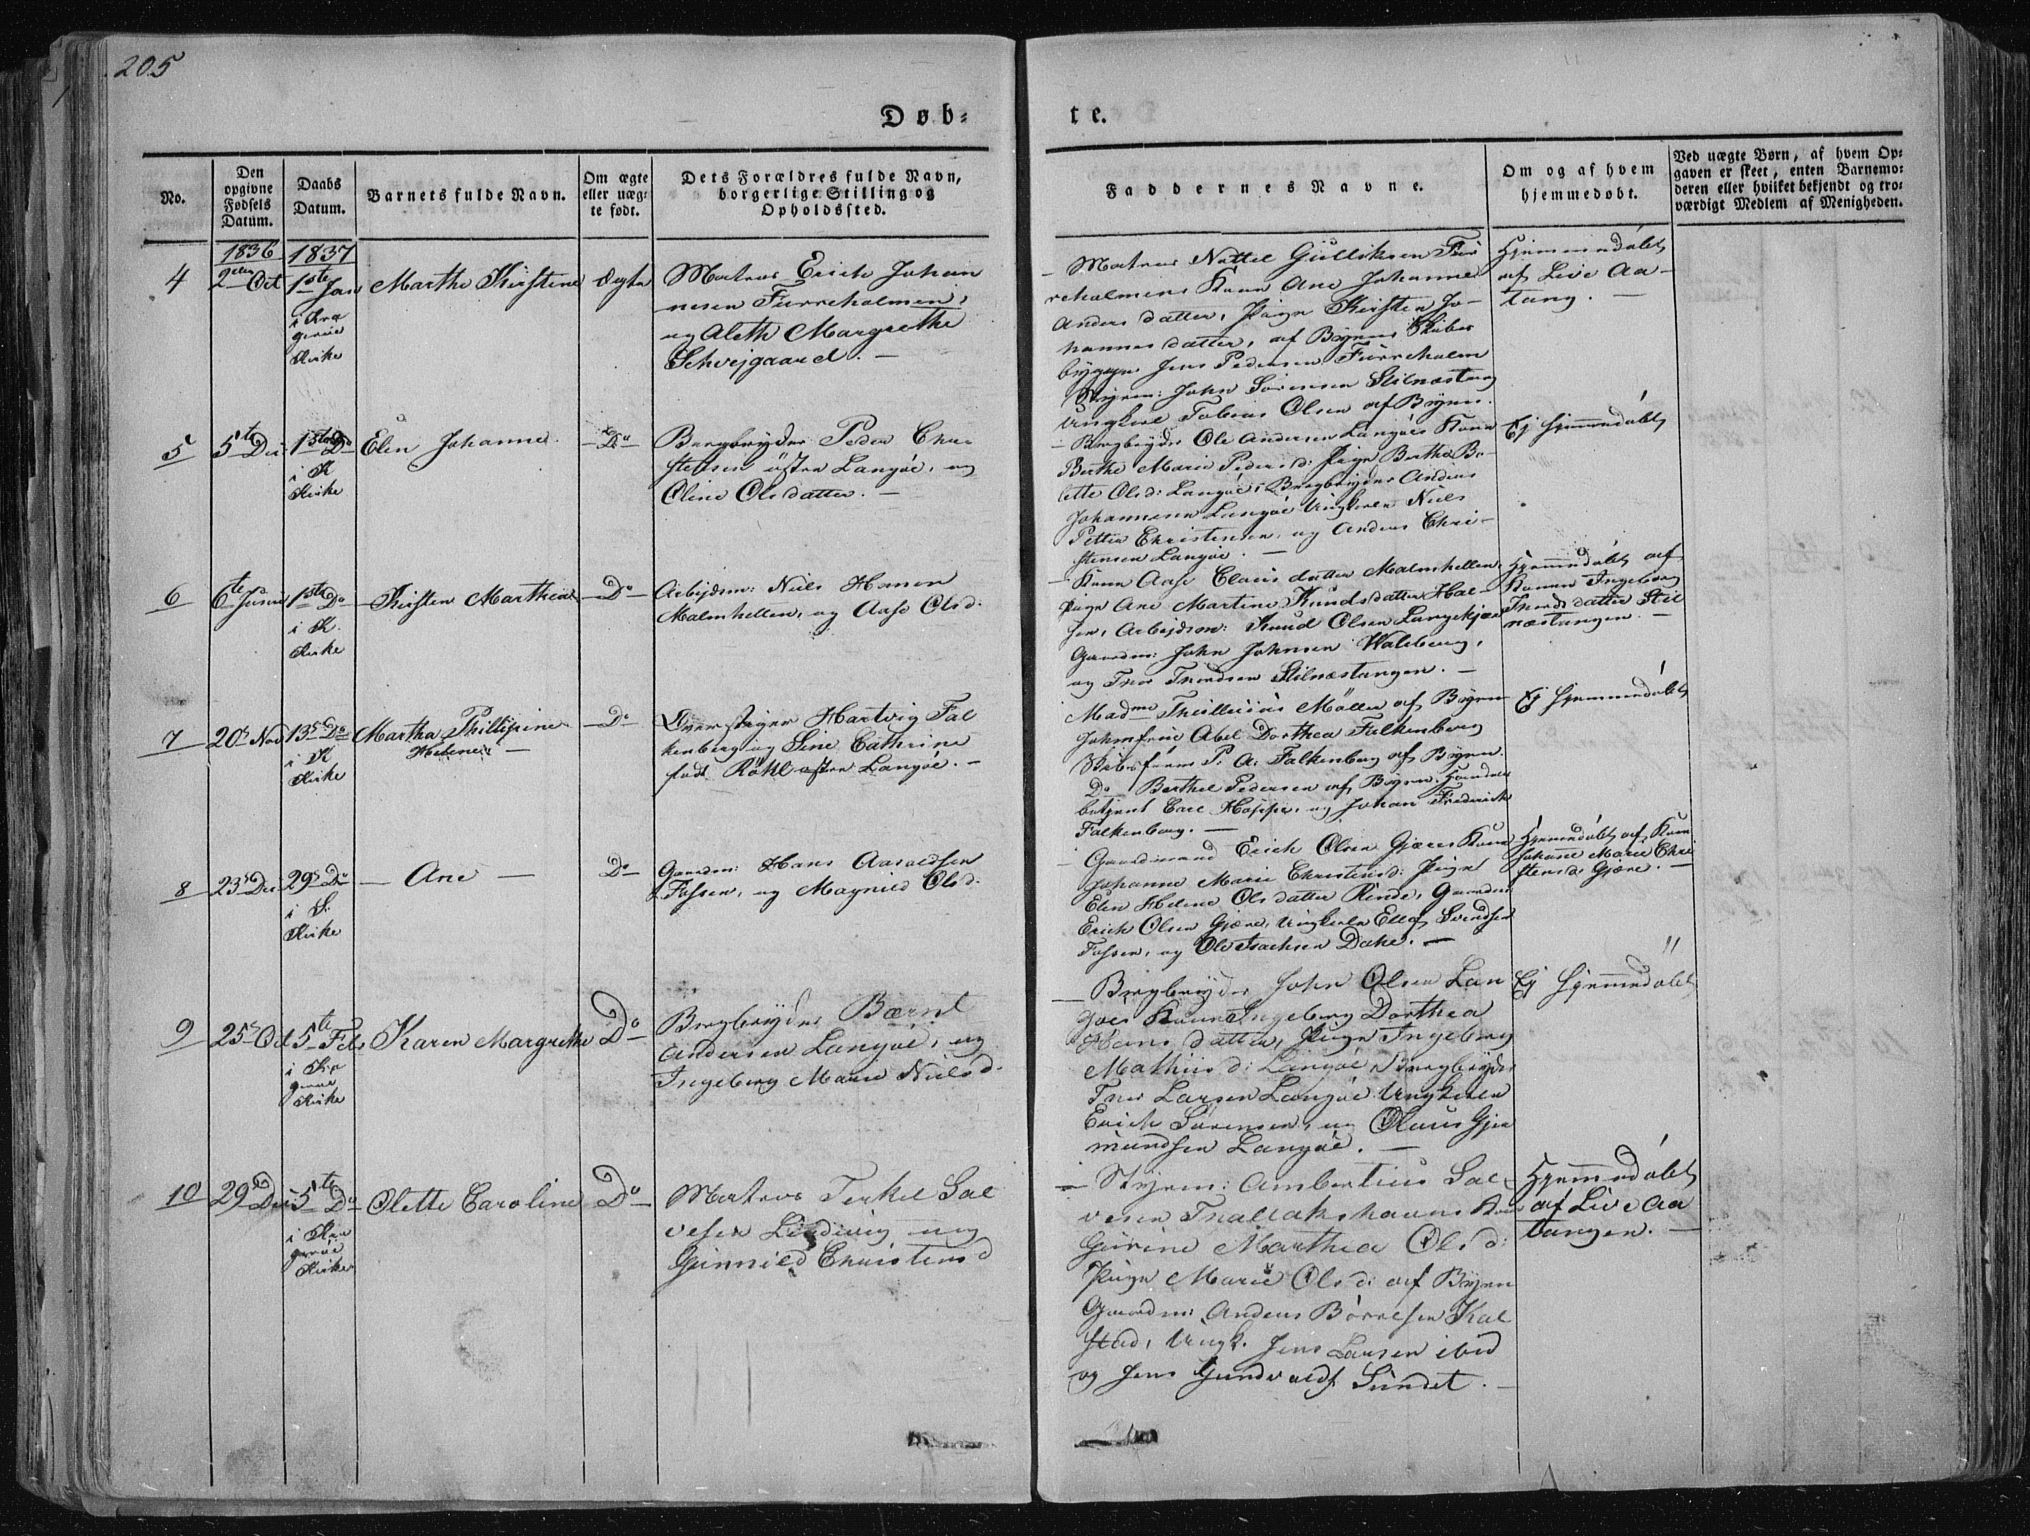 205
Døb=
te.
No.
Den
opgivne
Fødsels
Datum.
Daabs
Datum.
Barnets fulde Navn.
Om ægte
eller uæg-
te født.
Dets Forældres fulde Navn,
borgerlige Stilling og
Opholdssted.
Faddernes Navne.
Om og af hvem
hjemmedøbt.
Ved uægte Børn, af hvem Op-
gaven er skeet, enten Barnemo-
deren eller hvilket bekjendt og tro-
værdigt Medlem af Menigheden.
1836
1837
4
2den Oct
1ste Jan
i Kra
gerøe
Kirke
Marthe Kirstine
ægte
Matros Erich Johan
nesen Furreholmen,
og Aleth Margrethe
Schvejgaard. —
— Matros Nottel Gulliksen Fur
reholmens Kone Ane Johanne
Anders datter, Pige Kirsten Jo-
hannes datter, af Byen Skibs
bygger Jens Pedersen Furreholm
Styrm: John Sørensen Stilnæstang
Ungkarl Tobias Olsen af Byen.
Hjemmedøbt
af Live Aa-
tang. —
5
5te Dec
1ste Do
i K
Kirke
Elen Johanne
— Do —
Bergbryder Peder Chri
stensen østre Langøe, og
Oline Olsdatter. —
— Bergbryder Ole Andersen Langøes Kone
Berthe Marie Pedersd: Pige Berthe Bo-
lette Olsd: Langøe, Bergbryder Andreas
Johannesen Langøe Ungkarle Niels
Petter Christensen, og Anders Chri-
stensen Langøe. —
Ej Hjemmedøbt
6
6te Janu
1ste Do
i K.
Kirke
Kirsten Marthea
— Do —
Arbejdsm: Niels Hansen
Malmhellen, og Aase Olsd:
— Kone Aase Claus datter Malmhellen,
Pige Ane Martine Knudsdatter Hal-
sen, Arbejdsm: Knud Olsen Langekjær
Gaardm: John Johnsen Walberg,
og Thor Thordsen Stilnæstangen. —
Hjemmedøbt af
Konen Ingeborg
Thords datter Stil
næstangen. —
7
20s Nov
13de Do
i K
Kirke
Martha Phillipine
Helene —
— Do —
Overstiger Hartvig Fal
kenberg og Sine Cathrine
født Röhl østre Langøe. —
Madme Theillesius Möller af Byen
Johmfrue Abel Dorthea Falkenberg
Skibsfører P. A. Falkenberg af Byen.
Do Berthel Pedersen af Byen, Handels
betjent Carl Hoppe, og Johan Frederich
Falkenberg. —
Ej Hjemmedøbt
8
23s Dec
29s Do
i S.
Kirke
— Ane —
Do —
Gaardm: Hans Aaraldsen
Fossen, og Magnild Olsd:
— Gaardmand Erich Olsen Gjæres Kone
Johanne Marie Christensd: Pige
Elen Helene Olsdatter Rinde, Gaardm
Erich Olsen Gjære, Ungkarle Ellef Svendsen
Fossen, og Ole Isachsen Dake. —
Hjemmedøbt af Kone
Johanne Marie Chri
stensd: Gjære. —
"
9
25s Oct
5te Feb
i Kra
gerøe
Kirke
Karen Margrethe
Do —
Bergbryder Bærnt
Andersen Langøe, og
Ingeborg Marie Nielsd.
— Bergbryder John Olsen Lan
gøes Kone Ingeborg Dorthea
Hans datter, Pige Ingeborg
Mathiisd: Langøe, Bergbryder
Thor Larsen Langøe Ungkarle
Erich Sørensen, og Olaus Gjer
mundsen Langøe. —
Ej Hjemmedøbt
10
29s Dec
5te Do
i Kra
gerøe
Kirke
Olette Caroline
Do —
Matros Terkel Sal
vesen Lindvig og
Gunnild Christensd
— Styrm: Ambertius Sal-
vesen Thallakshavns Kone
Gurine Marthea Olsd:
Pige Marie Olsd: af Byen
Gaardm: Anders Börresen Kal
stad, Ungk. Jens Larsen ibid
og Jens Gundvaldsen Sundet. —
Hjemmedøbt
af Live Aa
tangen. —